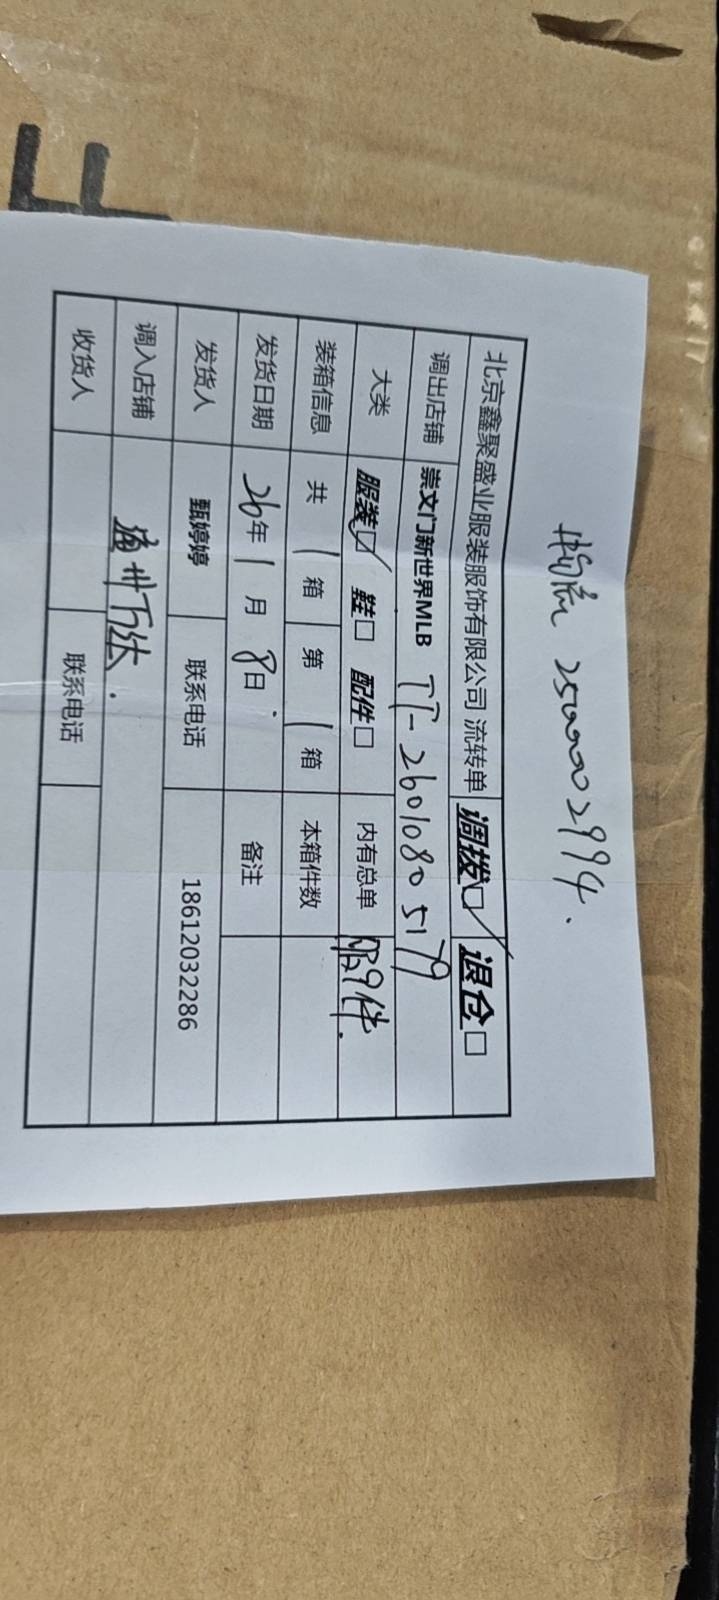 2500002994.
北京鑫聚盛业服装服饰有限公司 流转单 调拨☑ 退仓□
调出店铺 崇文门新世界MLB TF-26010805179
大类 服装☑ 鞋□ 配件□ 内有总单 服9件.
装箱信息 共 1 箱 第 1 箱 本箱件数
发货日期 26年 1 月 8日. 备注
发货人 甄婷婷 联系电话 18612032286
调入店铺 万达.
收货人 联系电话